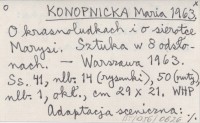 KONOPNICKA Maria 1963
O krasnoludkach i o sierotce
Marysi. Sztuka w 8 odsło-
nach. — Warszawa 1963.
Ss. 41, nlb. 14 (rysunki), 50 (nuty),
nlb. 1, okł., cm 29 x 21. WHP
Adaptacja sceniczna: